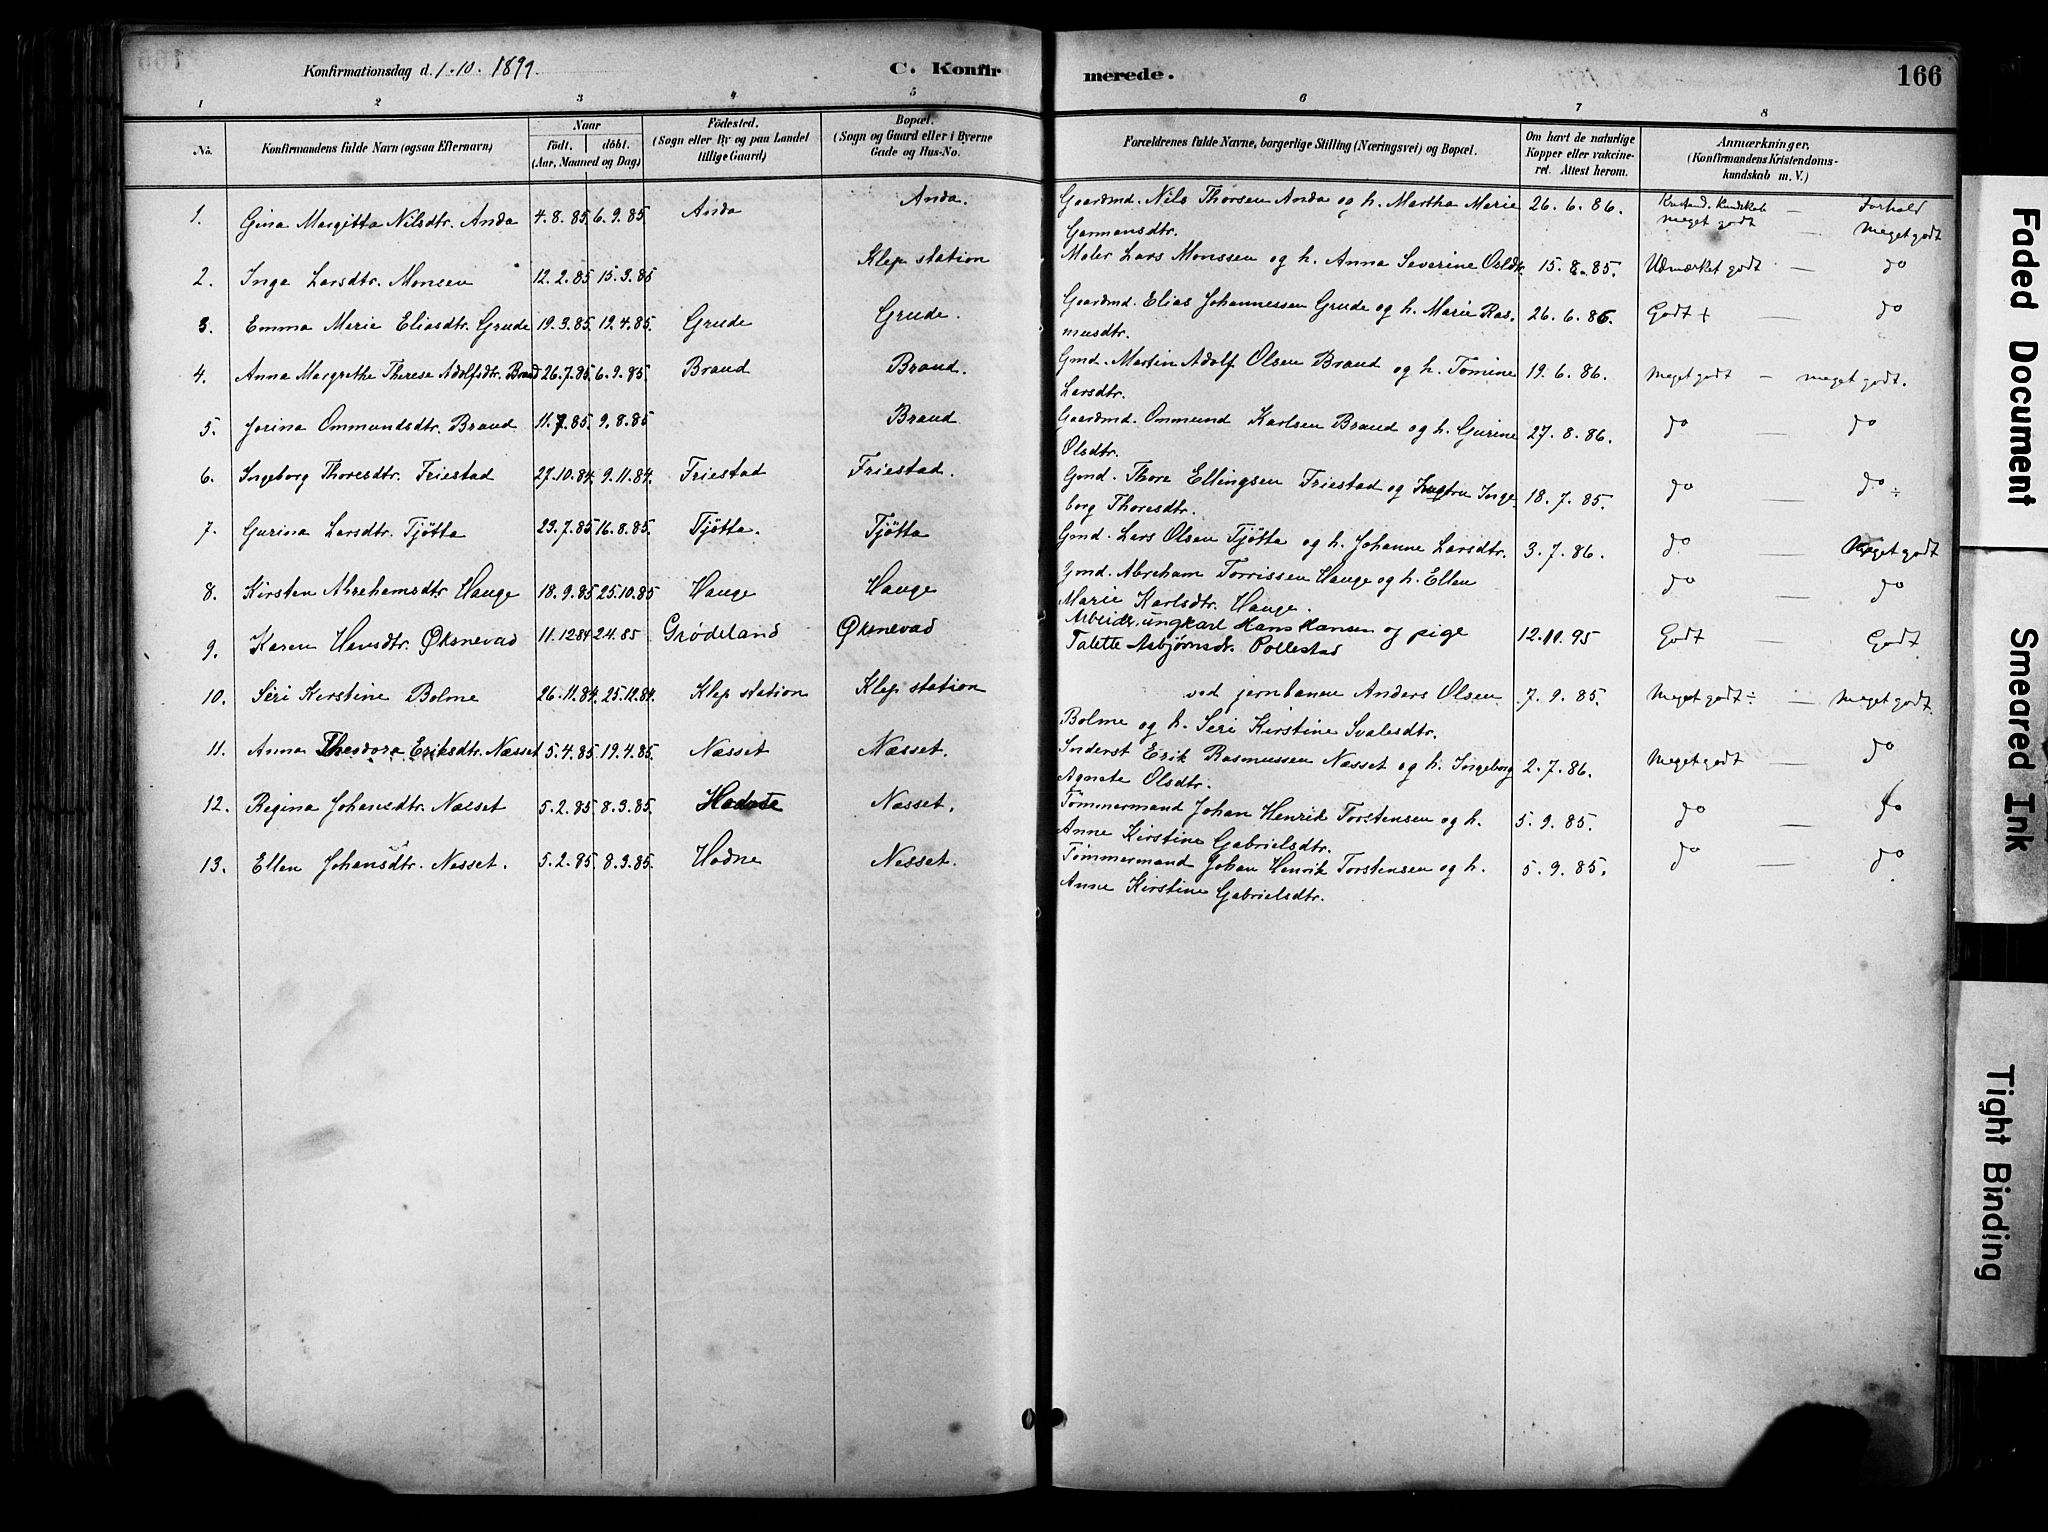 Konfirmationsdag d. 1.10. 1899. C. Konfir merede. 166
1 2 3 4 5 6 7 8
No. Konfirmandens fulde Navn (ogsaa Efternavn) Naar födt. döbt. (Aar, Maaned og Dag) Födested. (Sogn eller By og paa Landet tillige Gaard) Bopæl. (Sogn og Gaard eller i Byerne Gade og Hus-No. Forældrenes fulde Navne, borgerlige Stilling (Næringsvei) og Bopæl. Om havt de naturlige Kopper eller vakcineret. Attest herom. Anmærkninger. (Konfirmandens Kristendomskundskab m. V.)
1. Gina Margitta Nilsdtr. Anda 4.8.85 6.9.85 Anda Anda. Gaardmd. Nils Thorsen Anda og h. Martha Marie 26.6.86. Kristend. kundskab meget godt — Forhold meget godt
Garmansdtr.
2. Inga Larsdtr. Monsen 12.2.85 15.3.85 Klep station Maler Lars Monssen og h. Anna Severine 15.8.85. Udmærket godt — do
3. Emma Marie Eliasdtr. Grude 19.3.85 19.4.85. Grude Grude. Gaardmd. Elias Johannessen Grude og h. Marie Ras- 26.6.86. Godt + — do
musdtr.
4. Anna Margrethe Therese Adolfsdtr. Braud 26.7.85 6.9.85. Braud Braud. Gmd. Martin Adolf Olsen Braud og h. Tomine 19.6.86. Meget godt — meget godt.
Larsdtr.
5. Jorina Ommundsdtr. Braud 11.7.85 9.8.85 Braud Gaardmd. Ommund Karlsen Braud og h. Gurine 27.8.86. do — do
Olsdtr.
6. Ingeborg Thoresdtr. Friestad 27.10.84 9.11.84. Friestad Friestad. Gmd. Thore Ellingsen Friestad og Hustru Inge- 18.7.85. do — do ÷
borg Thoresdtr.
7. Gurina Larsdtr. Tjøtta 23.7.85 16.8.85. Tjøtta. Tjøtta Gmd. Lars Olsen Tjøtta og h. Johanne Larsdtr. 3.7.86. do — Meget godt
8. Kirsten Abrahamsdtr. Hauge 18.9.85 25.10.85 Hauge Hauge Gmd. Abraham Torrissen Hauge og h. Ellen do — do
Marie Karlsdtr. Hauge.
9. Karen Hansdtr. Øksnevad 11.12 84 2.4.85 Grødeland Øksnevad Arbeider, ungkarl Hans Hansen og pige 12.10.95 Godt — Godt
Talette Asbjørnsdr. Pollestad
10. Seri Kirstine Bolme 26.11.84. 25.12.84. Klep station Klep station ved jernbanen Anders Olsen 7.9.85. Meget godt ÷ — Meget godt.
Bolme og h. Seri Kirstine Svalesdtr.
11. Anna Theodora Eriksdtr. Næsset 5.4.85 19.4.85. Næsset Næsset. Inderst Erik Rasmussen Næsset og h. Ingeborg 2.7.86. Meget godt — do
Agnete Olsdtr.
12. Regina Johansdtr. Næsset 5.2.85 8.3.85. Næsset. Tømmermand Johan Henrik Torstensen og h. 5.9.85. do — do
Anne Kirstine Gabrielsdtr.
13. Ellen Johansdtr. Nesset. 5.2.85 8.3.85. Hodne Nesset. Tømmermand Johan Henrik Torstensen og h. 5.9.85. do — do
Anne Kirstine Gabrielsdtr.
Faded Document
Smeared Ink
Tight Binding